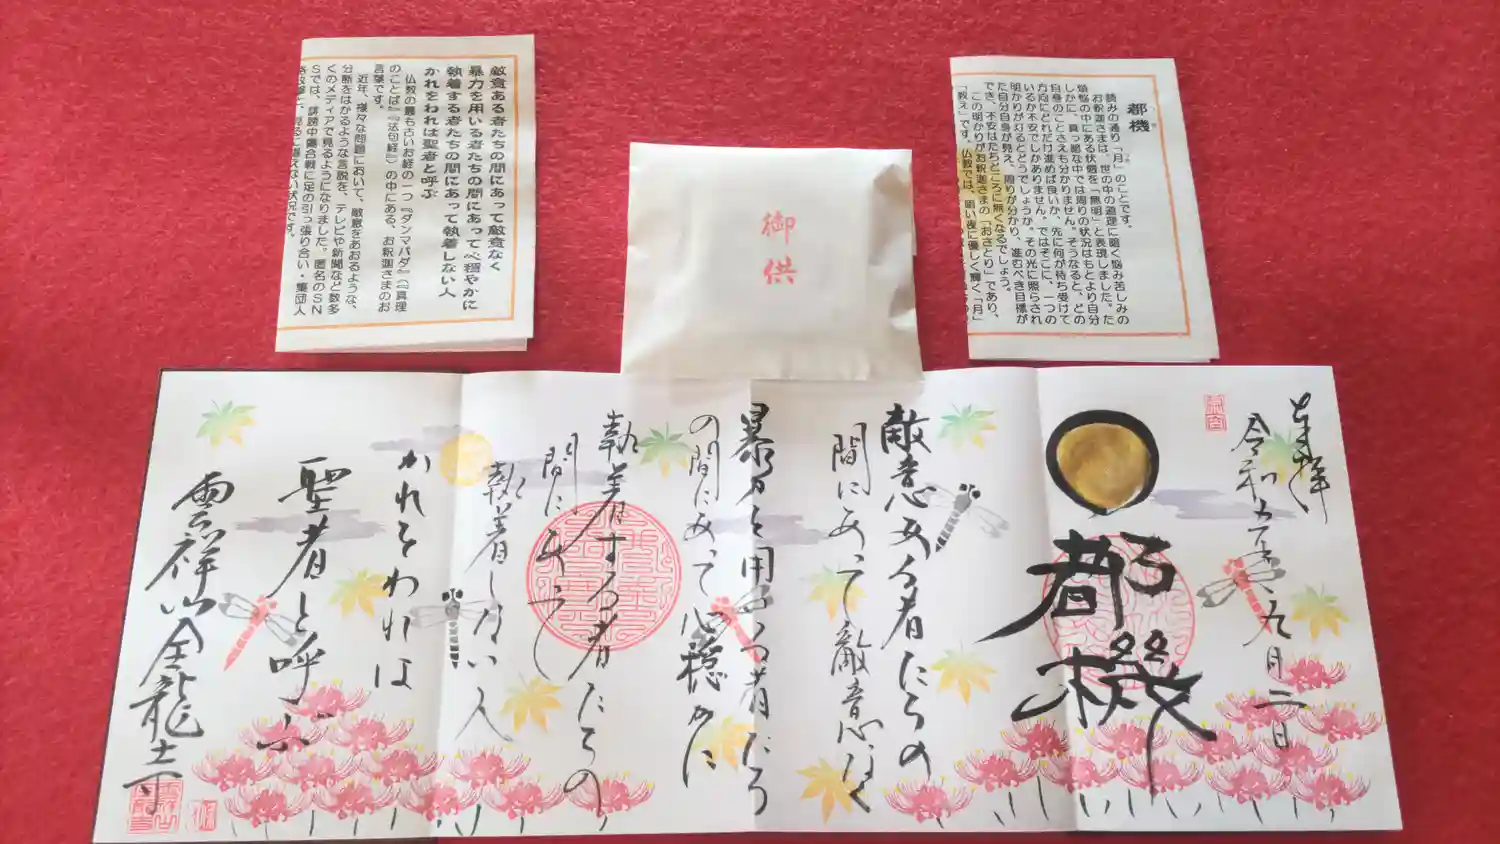 敵意ある者たちの間にあって敵意なく
暴力を用いる者たちの間にあって心穏やかに
執着する者たちの間にあって執着しない人
かれをわれは聖者と呼ぶ
仏教の最も古いお経の一つ『ダンマパダ』(『真理
のことば』『法句経』)の中にある、お釈迦さまのお
言葉です。
近年、様々な問題において、敵意をあおるような、
分断をはかるような言説を、テレビや新聞など数多
くのメディアで見るようになりました。匿名のSN
Sでは、誹謗中傷合戦に足の引っ張り合い・集団人
御供
都機
読みの通り「月」のことです。
お釈迦さまは、世の中の道理に暗く悩み苦しみの
煩悩の中にある状態を「無明」と表現しました。た
しかに、真っ暗な中では周りの状況はもとより自分
自身のことさえも分かりません。そうなると、どの
方向にどれだけ進めば良いか、先に何が待ち受けて
いるか不安でしかありません。ではそこに、一つの
明かりが灯るとどうでしょうか。その光に照らされ
た自分自身が見え、周りが分かり、進むべき目標が
でき、不安はたちどころに無くなるでしょう。
この明かりがお釈迦さまの「おさとり」であり、
「教え」です。仏教では、暗い夜に優しく輝く「月」
奉拝
令和五年九月二日
都機
敵意ある者たちの
間にあって敵意なく
暴力を用いる者たち
の間にあって心穏かに
執着する者たちの
間にあって
執着しない人
かれをわれは
聖者と呼ぶ
雲祥山金龍寺